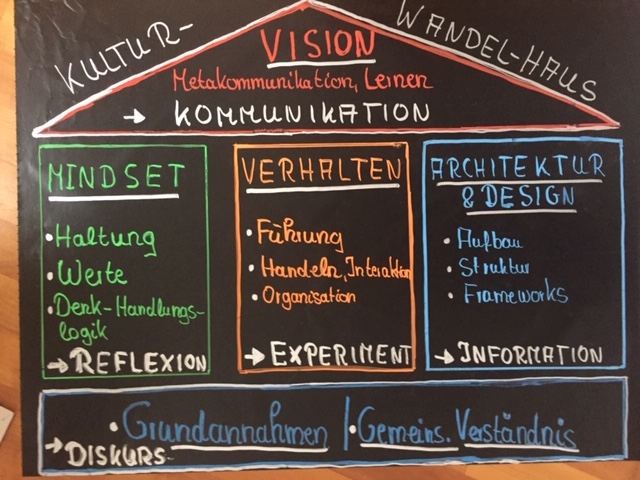 KULTUR-
WANDEL-HAUS
VISION
Metakommunikation, Lernen
→ KOMMUNIKATION
MINDSET
• Haltung
• Werte
• Denk-Handlungs-
logik
→ REFLEXION
VERHALTEN
• Führung
• Handeln, Interaktion
• Organisation
→ EXPERIMENT
ARCHITEKTUR
& DESIGN
• Aufbau
• Struktur
• Frameworks
→ INFORMATION
• Grundannahmen / • Gemeins. Verständnis
→ DISKURS-